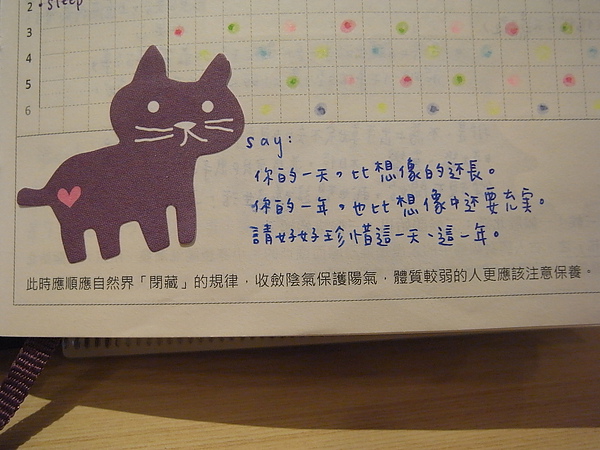 2 • sleep
3
4
5
6
say:
你的一天，比想像的还長。
你的一年，也比想像中还要充実。
請好好珍惜這一天、這一年。
此時應順應自然界「閉藏」的規律，收斂陰氣保護陽氣，體質較弱的人更應該注意保養。